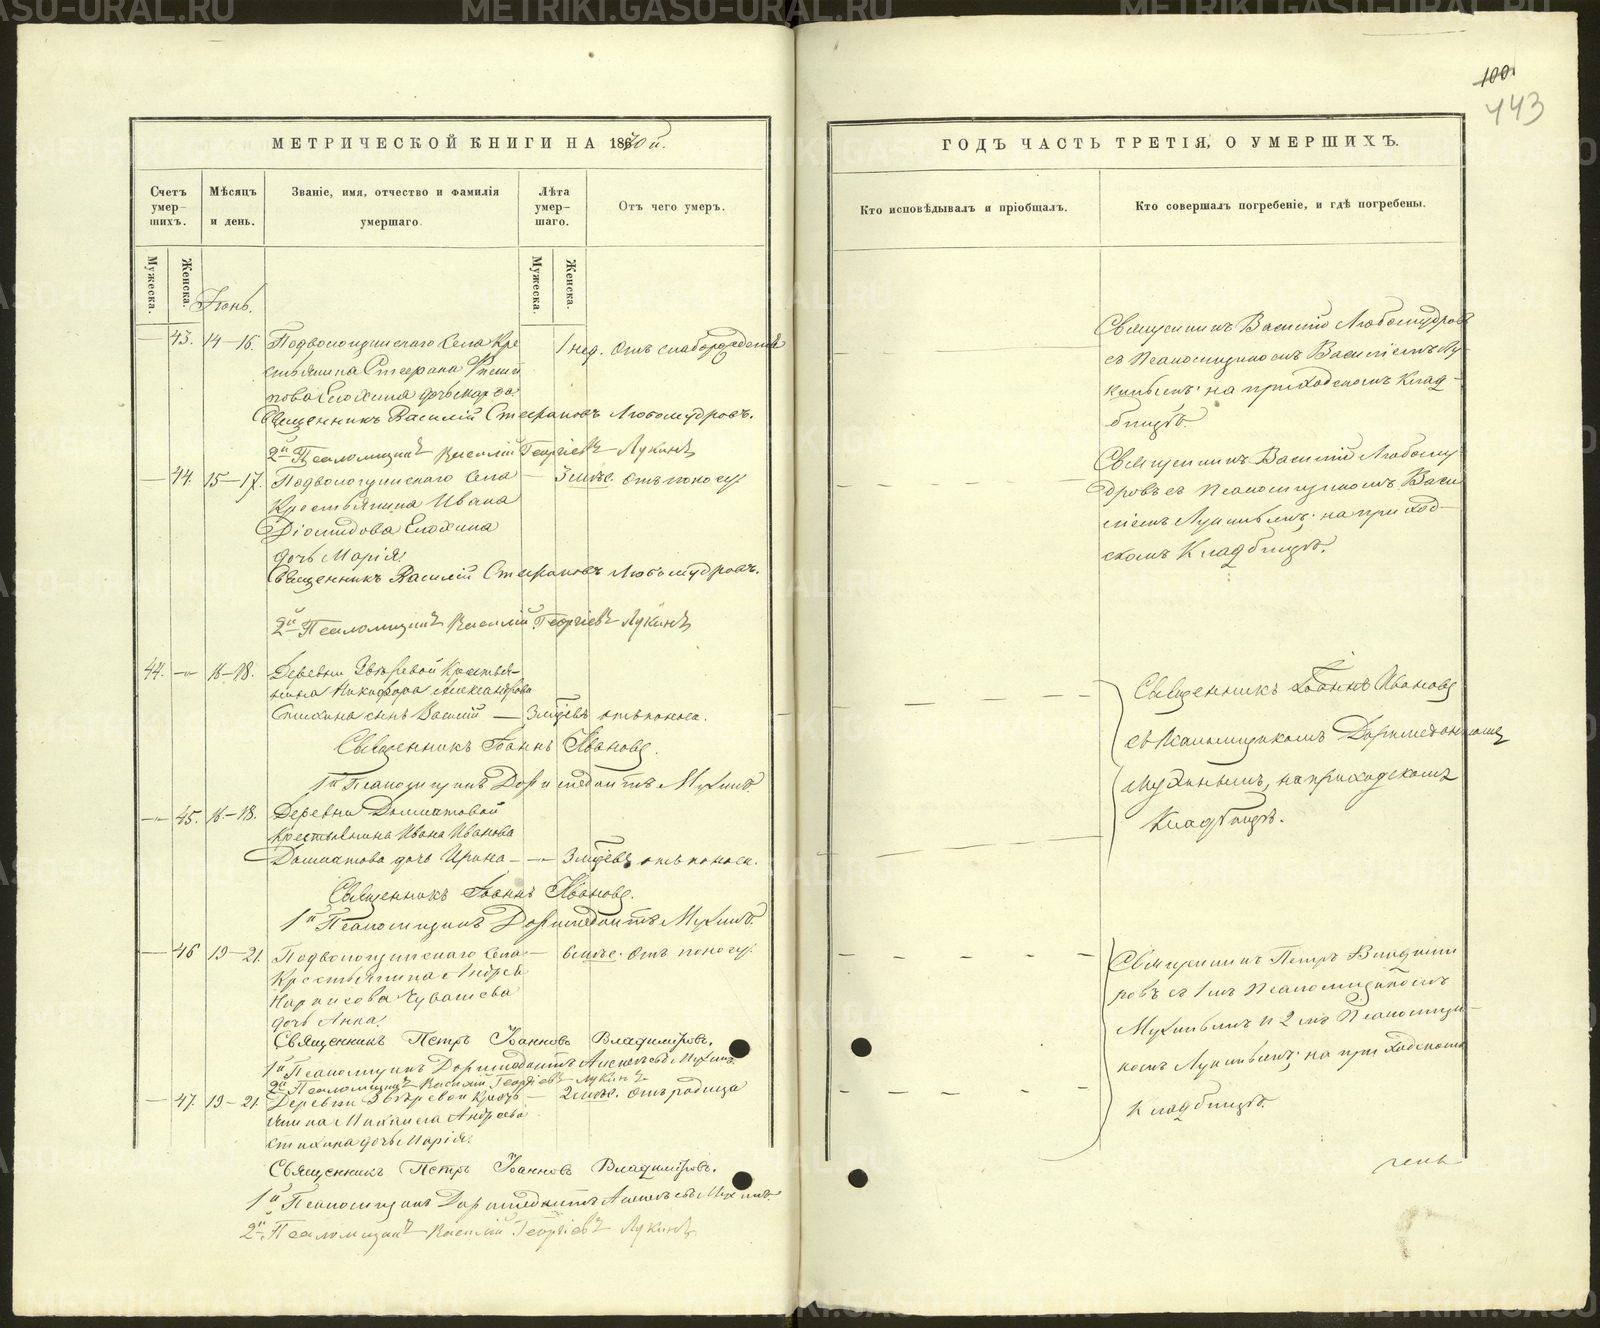 100
443
МЕТРИЧЕСКОЙ КНИГИ НА 1870й.
Счетъ умер-шихъ.
Мѣсяцъ и день.
Званіе, имя, отчество и фамилія умершаго.
Лѣта умер-шаго.
Отъ чего умеръ.
Мужеска.
Женска.
Мужеска.
Женска.
Іюнь.
— 43. 14–16. Подволошинскаго села Кре 1 нед. отъ слаборожденія
стьянина Стефана
пова Елохина дочь Марѳа.
Священникъ Василій Стефановъ Любомудровъ.
2й Псаломщикъ Василій Георгіевъ Лукинъ
— 44. 15–17. Подволошинскаго села — 3 мѣс. отъ поносу.
Крестьянина Ивана
Діомидова Елохина
дочь Марія
Священникъ Василій Стефановъ Любомудровъ.
2й Псаломщикъ Василій Георгіевъ Лукинъ
44. — 16–18. Деревни Звѣревой Крестья-
нина Никифора Александрова
Стихина сынъ Василій — отъ поноса.
Священникъ Іоаннъ Ивановъ.
1й Псаломщикъ Доримедонтъ Мухинъ
— 45. 16–18. Деревни Долматовой
Крестьянина Ивана Иванова
Долматова дочь Ирина — отъ поноса.
Священникъ Іоаннъ Ивановъ.
1й Псаломщикъ Доримедонтъ Мухинъ.
— 46 19–21. Подволошинскаго села — 6 мѣс. отъ поносу.
Крестьянина Андрея
Чувашева
дочь Анна.
Священникъ Петръ Іоанновъ Владиміровъ.
1й Псаломщикъ Доримедонтъ Мухинъ
2й Псаломщикъ Василій Георгіевъ Лукинъ
— 47. 19–21. Деревни Звѣревой Кресть — 2 мѣс. отъ родимца
янина Михаила Андреева
Стихина дочь Марія.
Священникъ Петръ Іоанновъ Владиміровъ.
1й Псаломщикъ Доримедонтъ Мухинъ
2й Псаломщикъ Василій Георгіевъ Лукинъ
ГОДЪ ЧАСТЬ ТРЕТІЯ, О УМЕРШИХЪ.
Кто исповѣдывалъ и пріобщалъ.
Кто совершалъ погребеніе, и гдѣ погребены.
Священникъ Василій Любомудровъ
съ Псаломщикомъ Василіемъ Лу-
кинымъ; на приходскомъ клад-
бищѣ.
Священникъ Василій Любому
дровъ съ Псаломщикомъ Васи
ліемъ Лукинымъ; на приход-
скомъ Кладбищѣ.
Священникъ Іоаннъ Ивановъ
съ Псаломщикомъ Доримедонтомъ
Мухинымъ, на приходскомъ
Кладбищѣ.
Священникъ Петръ Владимі
ровъ съ 1мъ Псаломщикомъ
Мухинымъ и 2мъ Псаломщи-
комъ Лукинымъ; на приходскомъ
Кладбищѣ.
METRIKI.GASO-URAL.RU